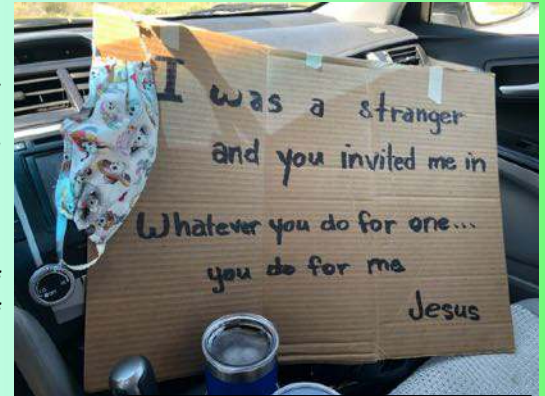 I was a stranger
and you invited me in
Whatever you do for one...
you do for me
Jesus